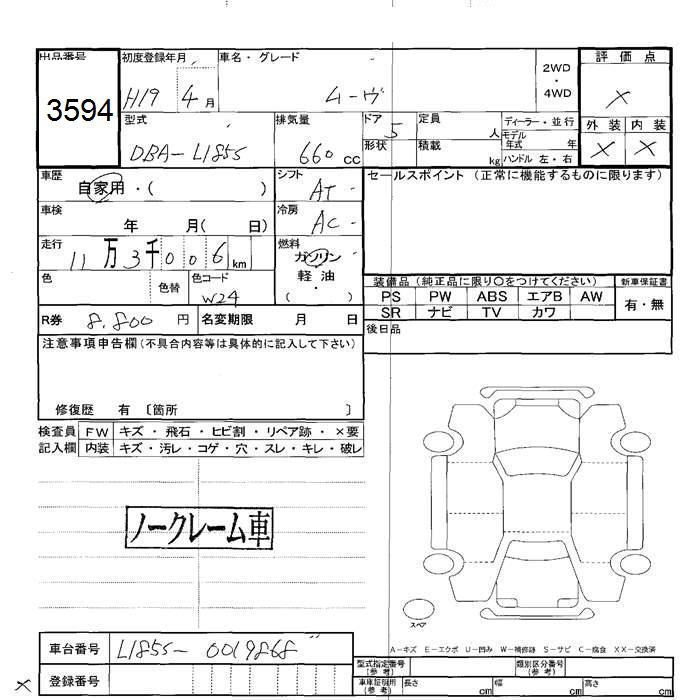 出品番号 初度登録年月 車名・グレード 2WD・4WD 評価点
3594 H19 4月 ムーヴ ×
型式 排気量 ドア 5 定員 人 ディーラー・並行 外装 内装
DBA-L185S 660cc 形状 積載 kg モデル年式 年 × ×
ハンドル 左・右
車歴 自家用・( ) シフト AT セールスポイント(正常に機能するものに限ります)
車検 年 月( 日) 冷房 AC
走行 11万3千006km 燃料 ガソリン・軽油・( )
色 色替 色コード W24 装備品(純正品に限り○をつけてください) 新車保証書
PS PW ABS エアB AW 有・無
SR ナビ TV カワ
R券 8.800円 名変期限 月 日 後日品
注意事項申告欄(不具合内容等は具体的に記入して下さい)
修復歴 有 〔箇所 〕
検査員 FW キズ・飛石・ヒビ割・リペア跡・×要
記入欄 内装 キズ・汚レ・コゲ・穴・スレ・キレ・破レ
ノークレーム車
スペア
A-キズ E-エクボ U-凹み W-補修跡 S-サビ C-腐食 XX-交換済
車台番号 L185S-0019868 型式指定番号(参考) 類別区分番号(参考)
× 登録番号 車庫証明用(参考) 長さ cm 幅 cm 高さ cm